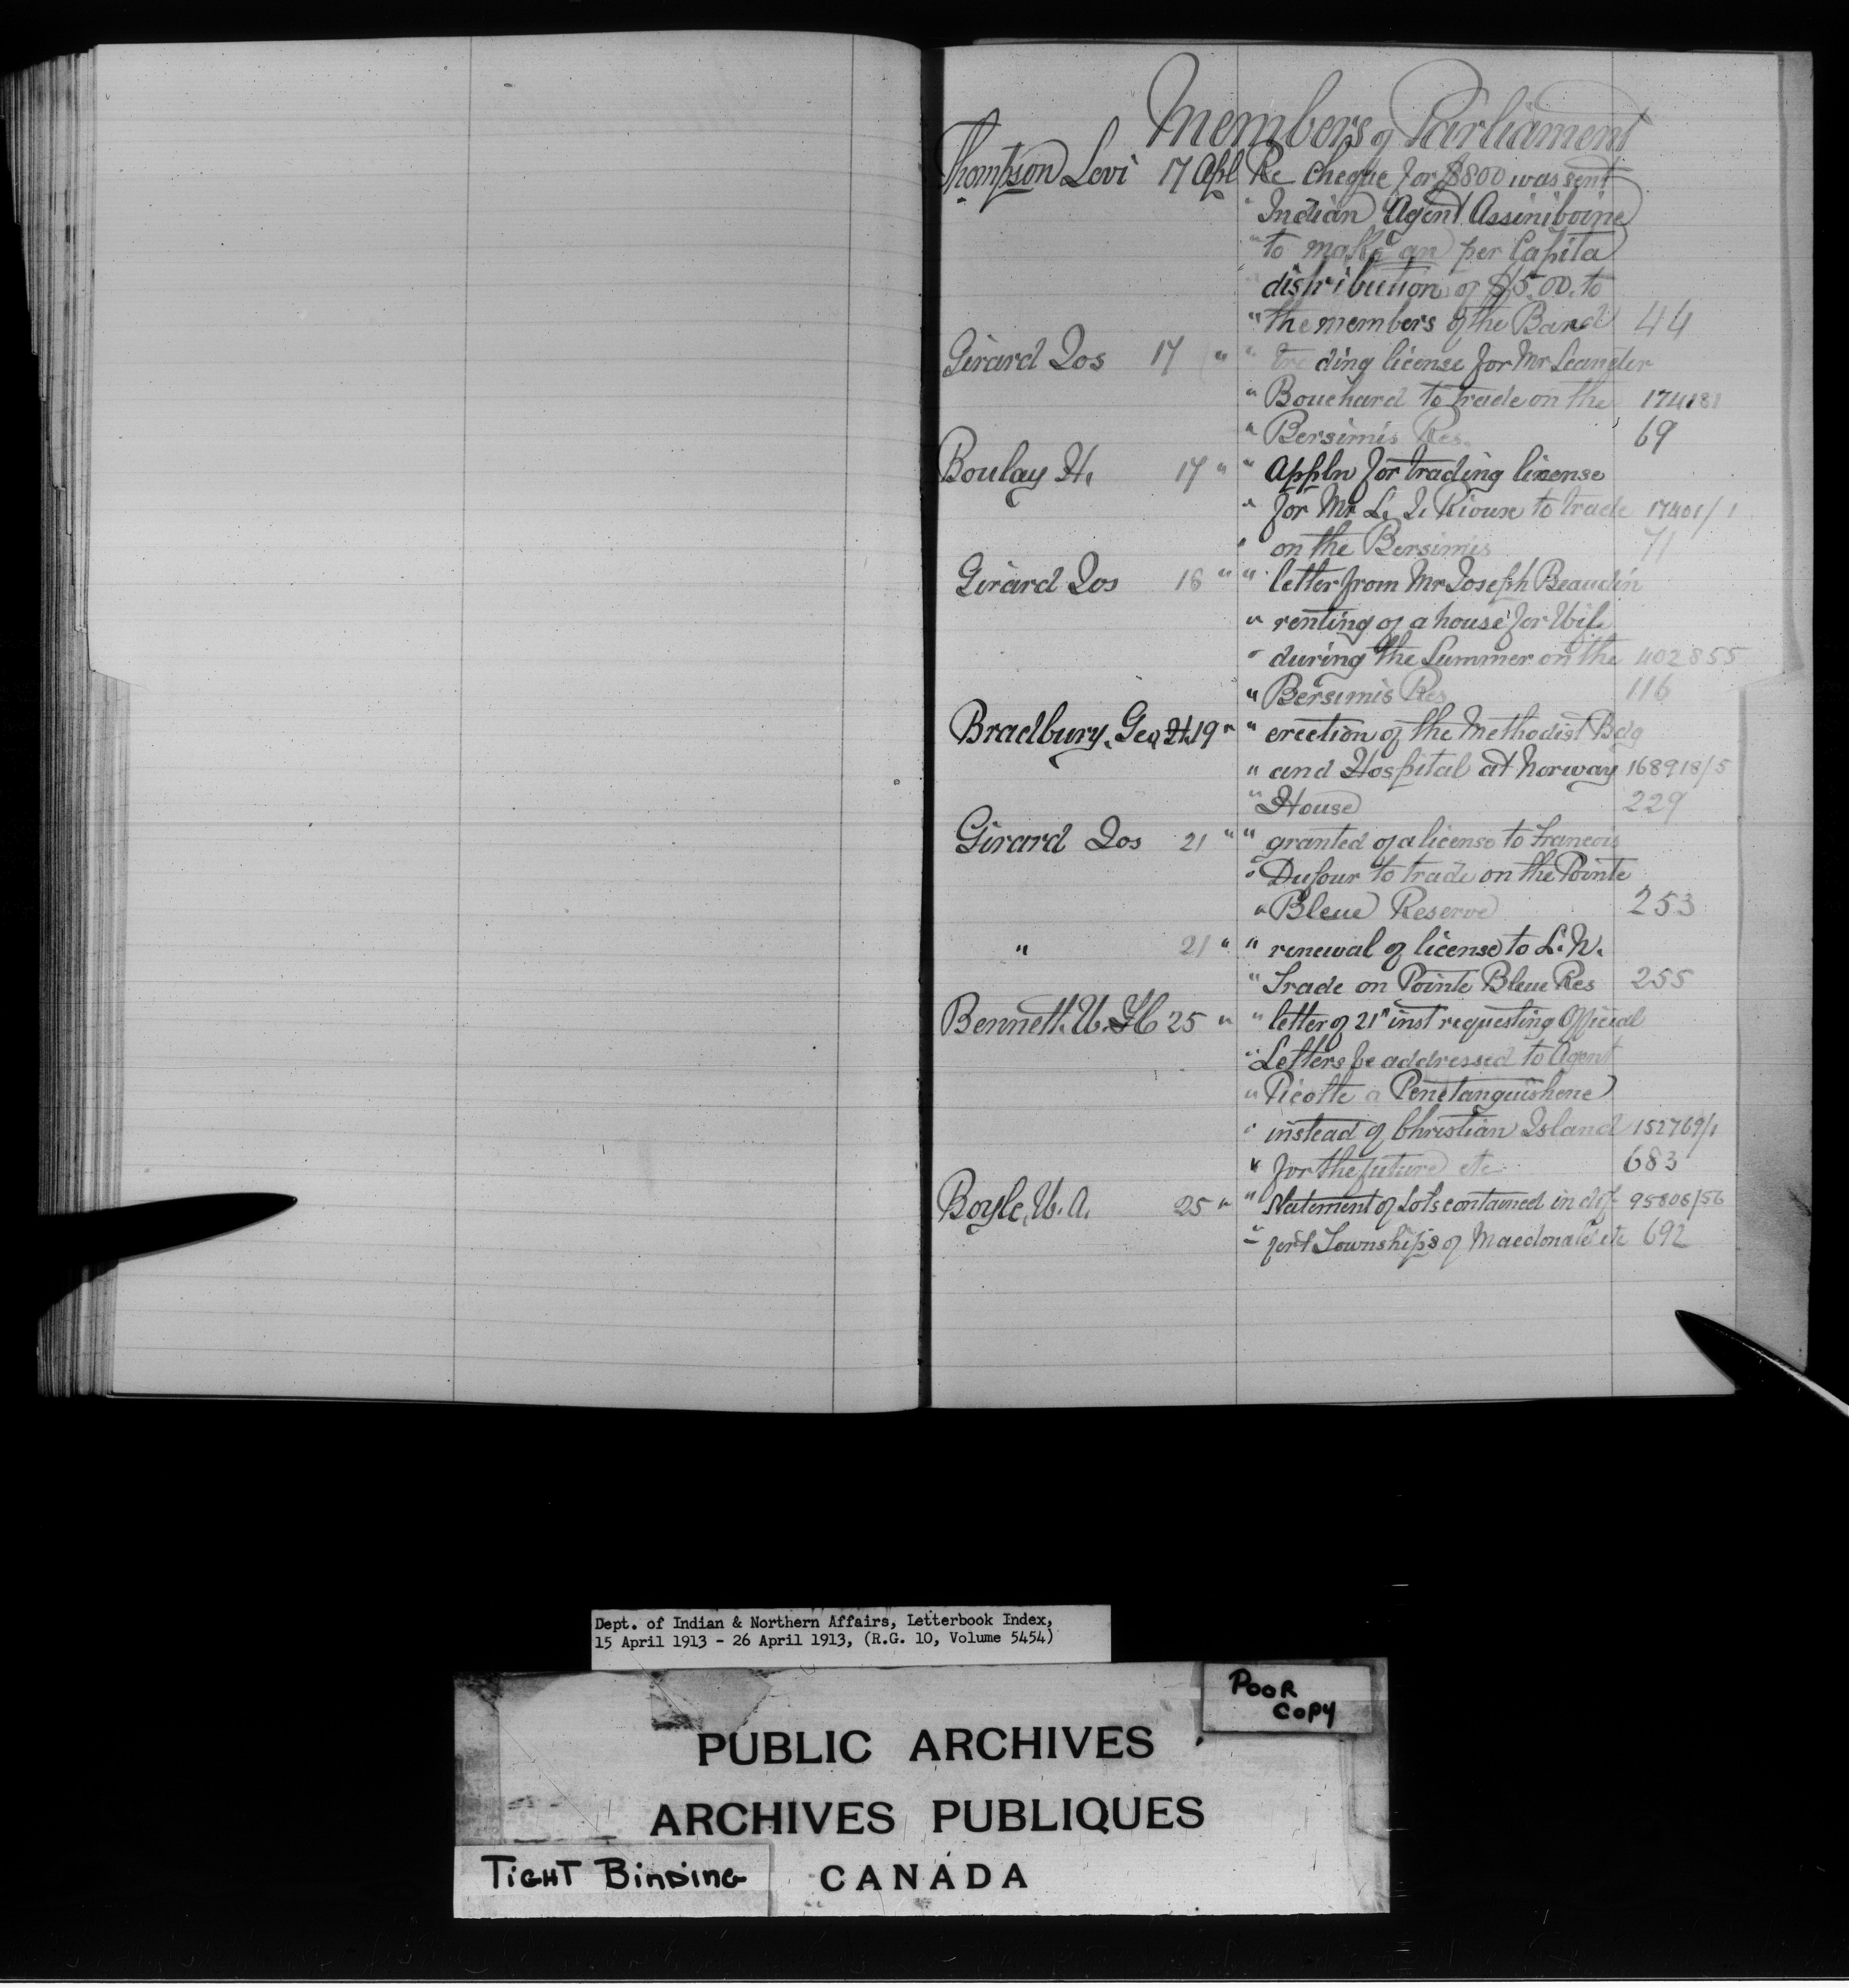 Members of Parliament
Thompson Levi 17 Apl Re Cheque for $800 was sent
" Indian Agent Assiniboine
" to make an per Capita
distribution of $5.00 to
" the members of the Band 44
Girard Jos 17 " " trading license for Mr Leander
" Bouchard to trade on the 174181
" Bersimis Res. 69
Boulay H. 17 " " Appln for trading license
" for Mr L. J. Rioux to trade 17401/1
" on the Bersimis 71
Girard Jos 18 " " letter from Mr Joseph Beaudin
" renting of a house for Wife
" during the Summer on the 402855
" Bersimis Res 116
Bradbury, Geo H. 19 " " erection of the Methodist Bdg
" and Hospital at Norway 168918/5
" House 229
Girard Jos 21 " " granted of a license to Francois
" Dufour to trade on the Pointe
" Bleue Reserve 253
" 21 " " renewal of license to L. N.
" Trade on Pointe Bleue Res 255
Bennett. W. H 25 " " letter of 21st inst requesting Official
" Letters be addressed to Agent
" Picotte a Penetanguishene
" instead of Christian Island 152769/1
" for the future etc 683
Boyle, W. A. 25 " " Statement of Lots contained in dif 95808/56
" fert Townships of Macdonald etc 692
Dept. of Indian & Northern Affairs, Letterbook Index,
15 April 1913 - 26 April 1913, (R.G. 10, Volume 5454)
POOR
COPY
PUBLIC ARCHIVES
ARCHIVES PUBLIQUES
TIGHT BINDING
CANADA